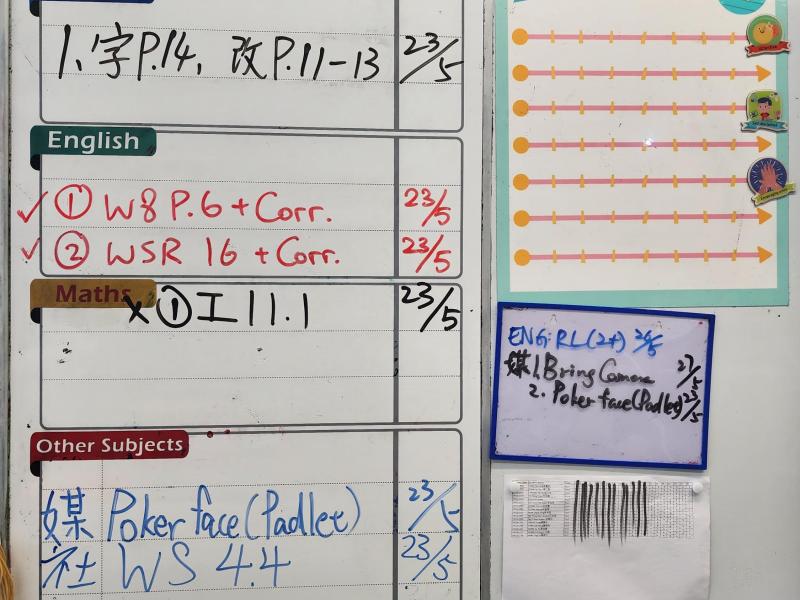 1. 字P.14, 改P.11-13 23/5
English
✓ ① W8 P.6 + Corr. 23/5
✓ ② WSR 16 + Corr. 23/5
Maths
x ① 工 11.1 23/5
Other Subjects
媒 Poker face (Padlet) 23/5
社 WS 4.4 23/5
ENG: RL (2+) 26/5
媒 1. Bring Camera 27/5
2. Poker face (Padlet) 23/5